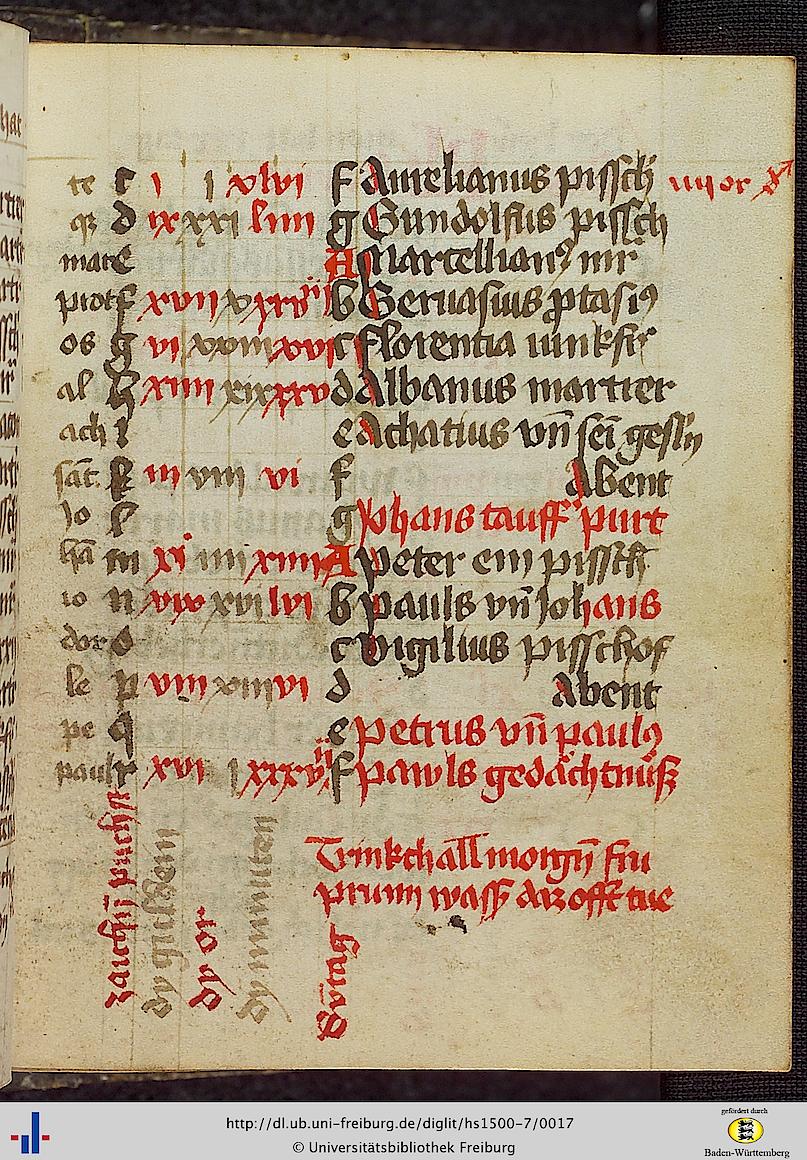 te c i i xlvi f Aurelianus pisscħ iiii or
qꝫ d ix xxi liiii g Gundolffus pissch
mate e A Martellianꝰ mr̄
prote f xvii v b Geruasius ꝓtasiꝰ
os g vi xviii xvi c Florentia iunkfir
al h xiiii xix xxv d Albanus martrer
ach i e Achatius vn̄ sei gesliꝫ
sāt. k iii viii vi f Abent
Jo l g Johans tauff purt
hā m xi iiii xiiii A Peter ein pisscħ
io n xix xvii lvi b Pauls vn̄ Johans
dor o c Vigilius pisschof
le p viii xiiii vi d Abent
pe q e Petrus vn̄ paulꝰ
paul r xvi i f Pawls gedächtnüß
Trinkch all morgn̄ fru
Prunn wasß daz offt tue
zaichn̄ puchst
dy guldem
dy or
dy mynuten
Sūtag
http://dl.ub.uni-freiburg.de/diglit/hs1500-7/0017
© Universitätsbibliothek Freiburg
gefördert durch
Baden-Württemberg